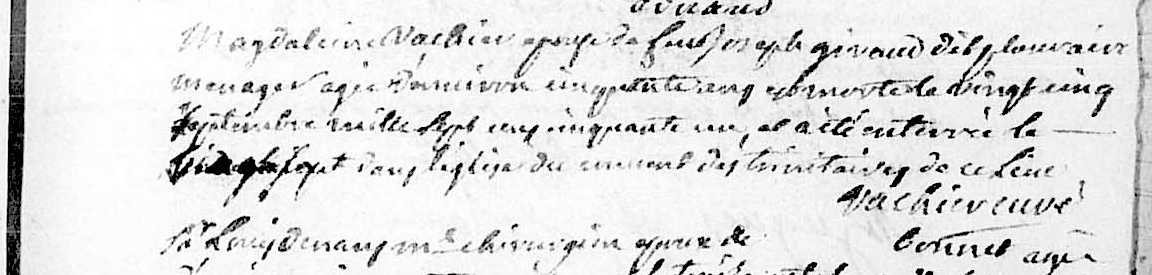 Magdaleine Vachier epouse de feu Joseph giraud
menager agée d'environ cinquante ans est morte le vingt cinq
septembre mille sept cens cinquante un, et a été enterrée le
vingt sept dans l'église du couvent des trinitaires de ce Lieu
Vachier curé
Sr Louis Denans me chirurgien epoux de bonnet agé